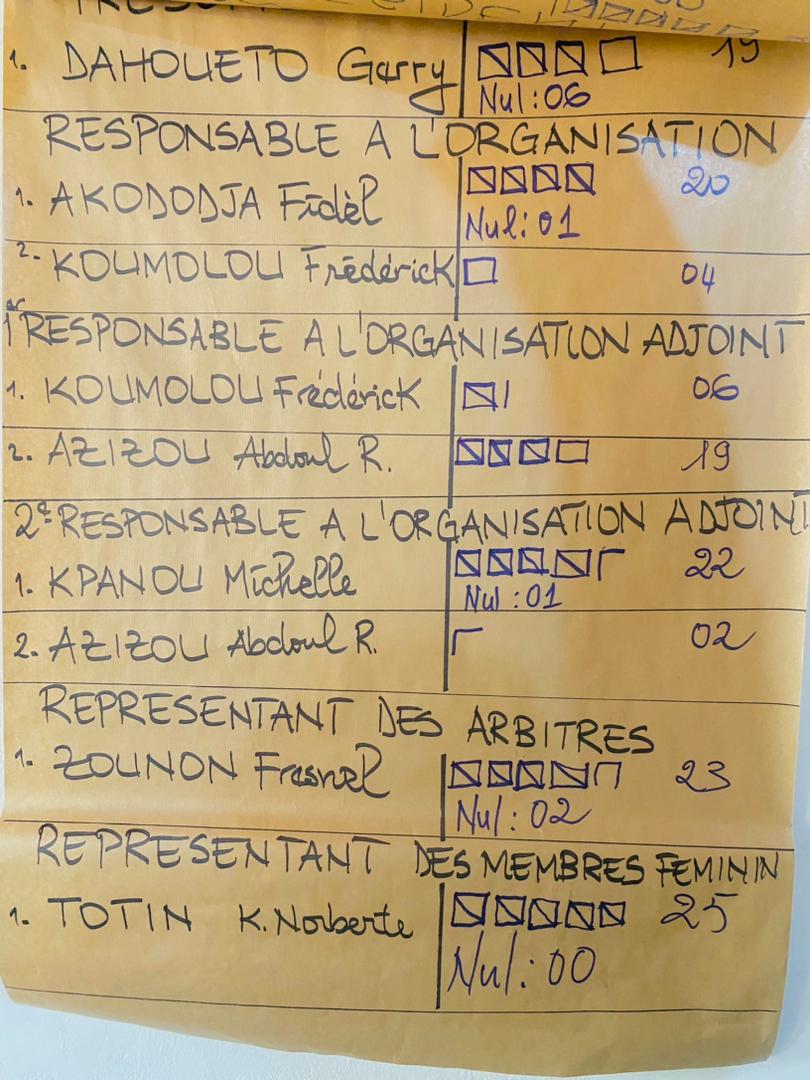 1. DAHOUETO Garry 19
Nul:06
RESPONSABLE A L'ORGANISATION
1. AKODODJA Fidèl 20
Nul:01
2. KOUMOLOU Frédérick 04
1er RESPONSABLE A L'ORGANISATION ADJOINT
1. KOUMOLOU Frédérick 06
2. AZIZOU Abdoul R. 19
2e RESPONSABLE A L'ORGANISATION ADJOINT
1. KPANOU Michelle 22
Nul:01
2. AZIZOU Abdoul R. 02
REPRESENTANT DES ARBITRES
1. ZOUNON Fresnel 23
Nul:02
REPRESENTANT DES MEMBRES FEMININ
1. TOTIN K.Norberte 25
Nul:00